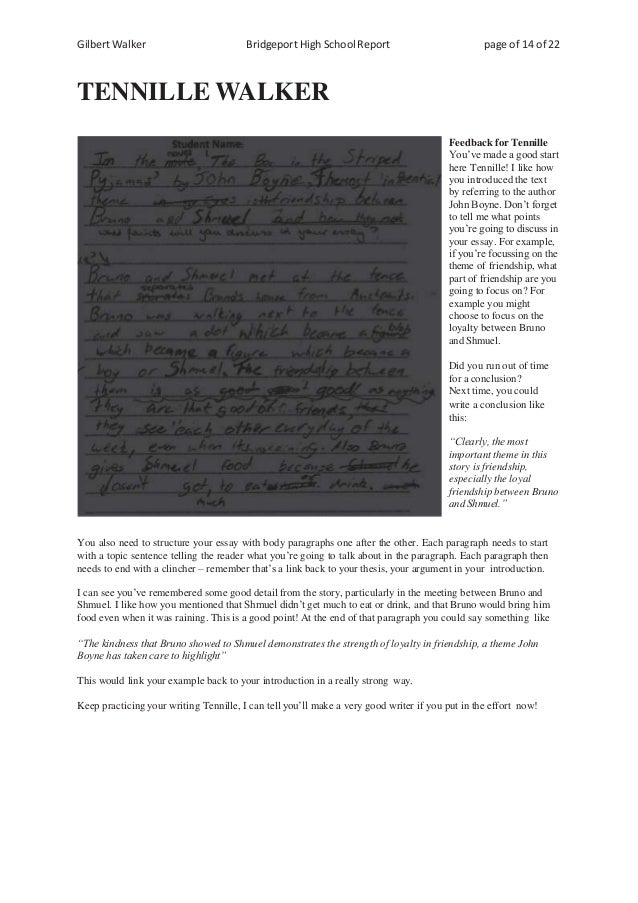 Gilbert Walker Bridgeport High School Report page of 14 of 22
TENNILLE WALKER
Student Name:
novel
In the movie, The Boy in the Striped
Pyjamas by John Boyne. The most
theme is friendship between
Bruno and Shmuel and how
what points will you discuss in your essay?
Bruno and Shmuel met at the fence
separates
that Bruno's house from
Bruno was walking next to the fence
blob
and saw a dot which became a
which became a figure which became a
boy or Shmuel. The friendship between
them is as good as anything
They are that good of friends
they see each other everyday of the
week, even when its raining. Also Bruno
gives Shmuel food because he
dosent get, to eat drink.
much
Feedback for Tennille
You've made a good start
here Tennille! I like how
you introduced the text
by referring to the author
John Boyne. Don't forget
to tell me what points
you're going to discuss in
your essay. For example,
if you're focussing on the
theme of friendship, what
part of friendship are you
going to focus on? For
example you might
choose to focus on the
loyalty between Bruno
and Shmuel.
Did you run out of time
for a conclusion?
Next time, you could
write a conclusion like
this:
“Clearly, the most
important theme in this
story is friendship,
especially the loyal
friendship between Bruno
and Shmuel.”
You also need to structure your essay with body paragraphs one after the other. Each paragraph needs to start
with a topic sentence telling the reader what you're going to talk about in the paragraph. Each paragraph then
needs to end with a clincher – remember that's a link back to your thesis, your argument in your introduction.
I can see you've remembered some good detail from the story, particularly in the meeting between Bruno and
Shmuel. I like how you mentioned that Shmuel didn't get much to eat or drink, and that Bruno would bring him
food even when it was raining. This is a good point! At the end of that paragraph you could say something like
“The kindness that Bruno showed to Shmuel demonstrates the strength of loyalty in friendship, a theme John
Boyne has taken care to highlight”
This would link your example back to your introduction in a really strong way.
Keep practicing your writing Tennille, I can tell you'll make a very good writer if you put in the effort now!